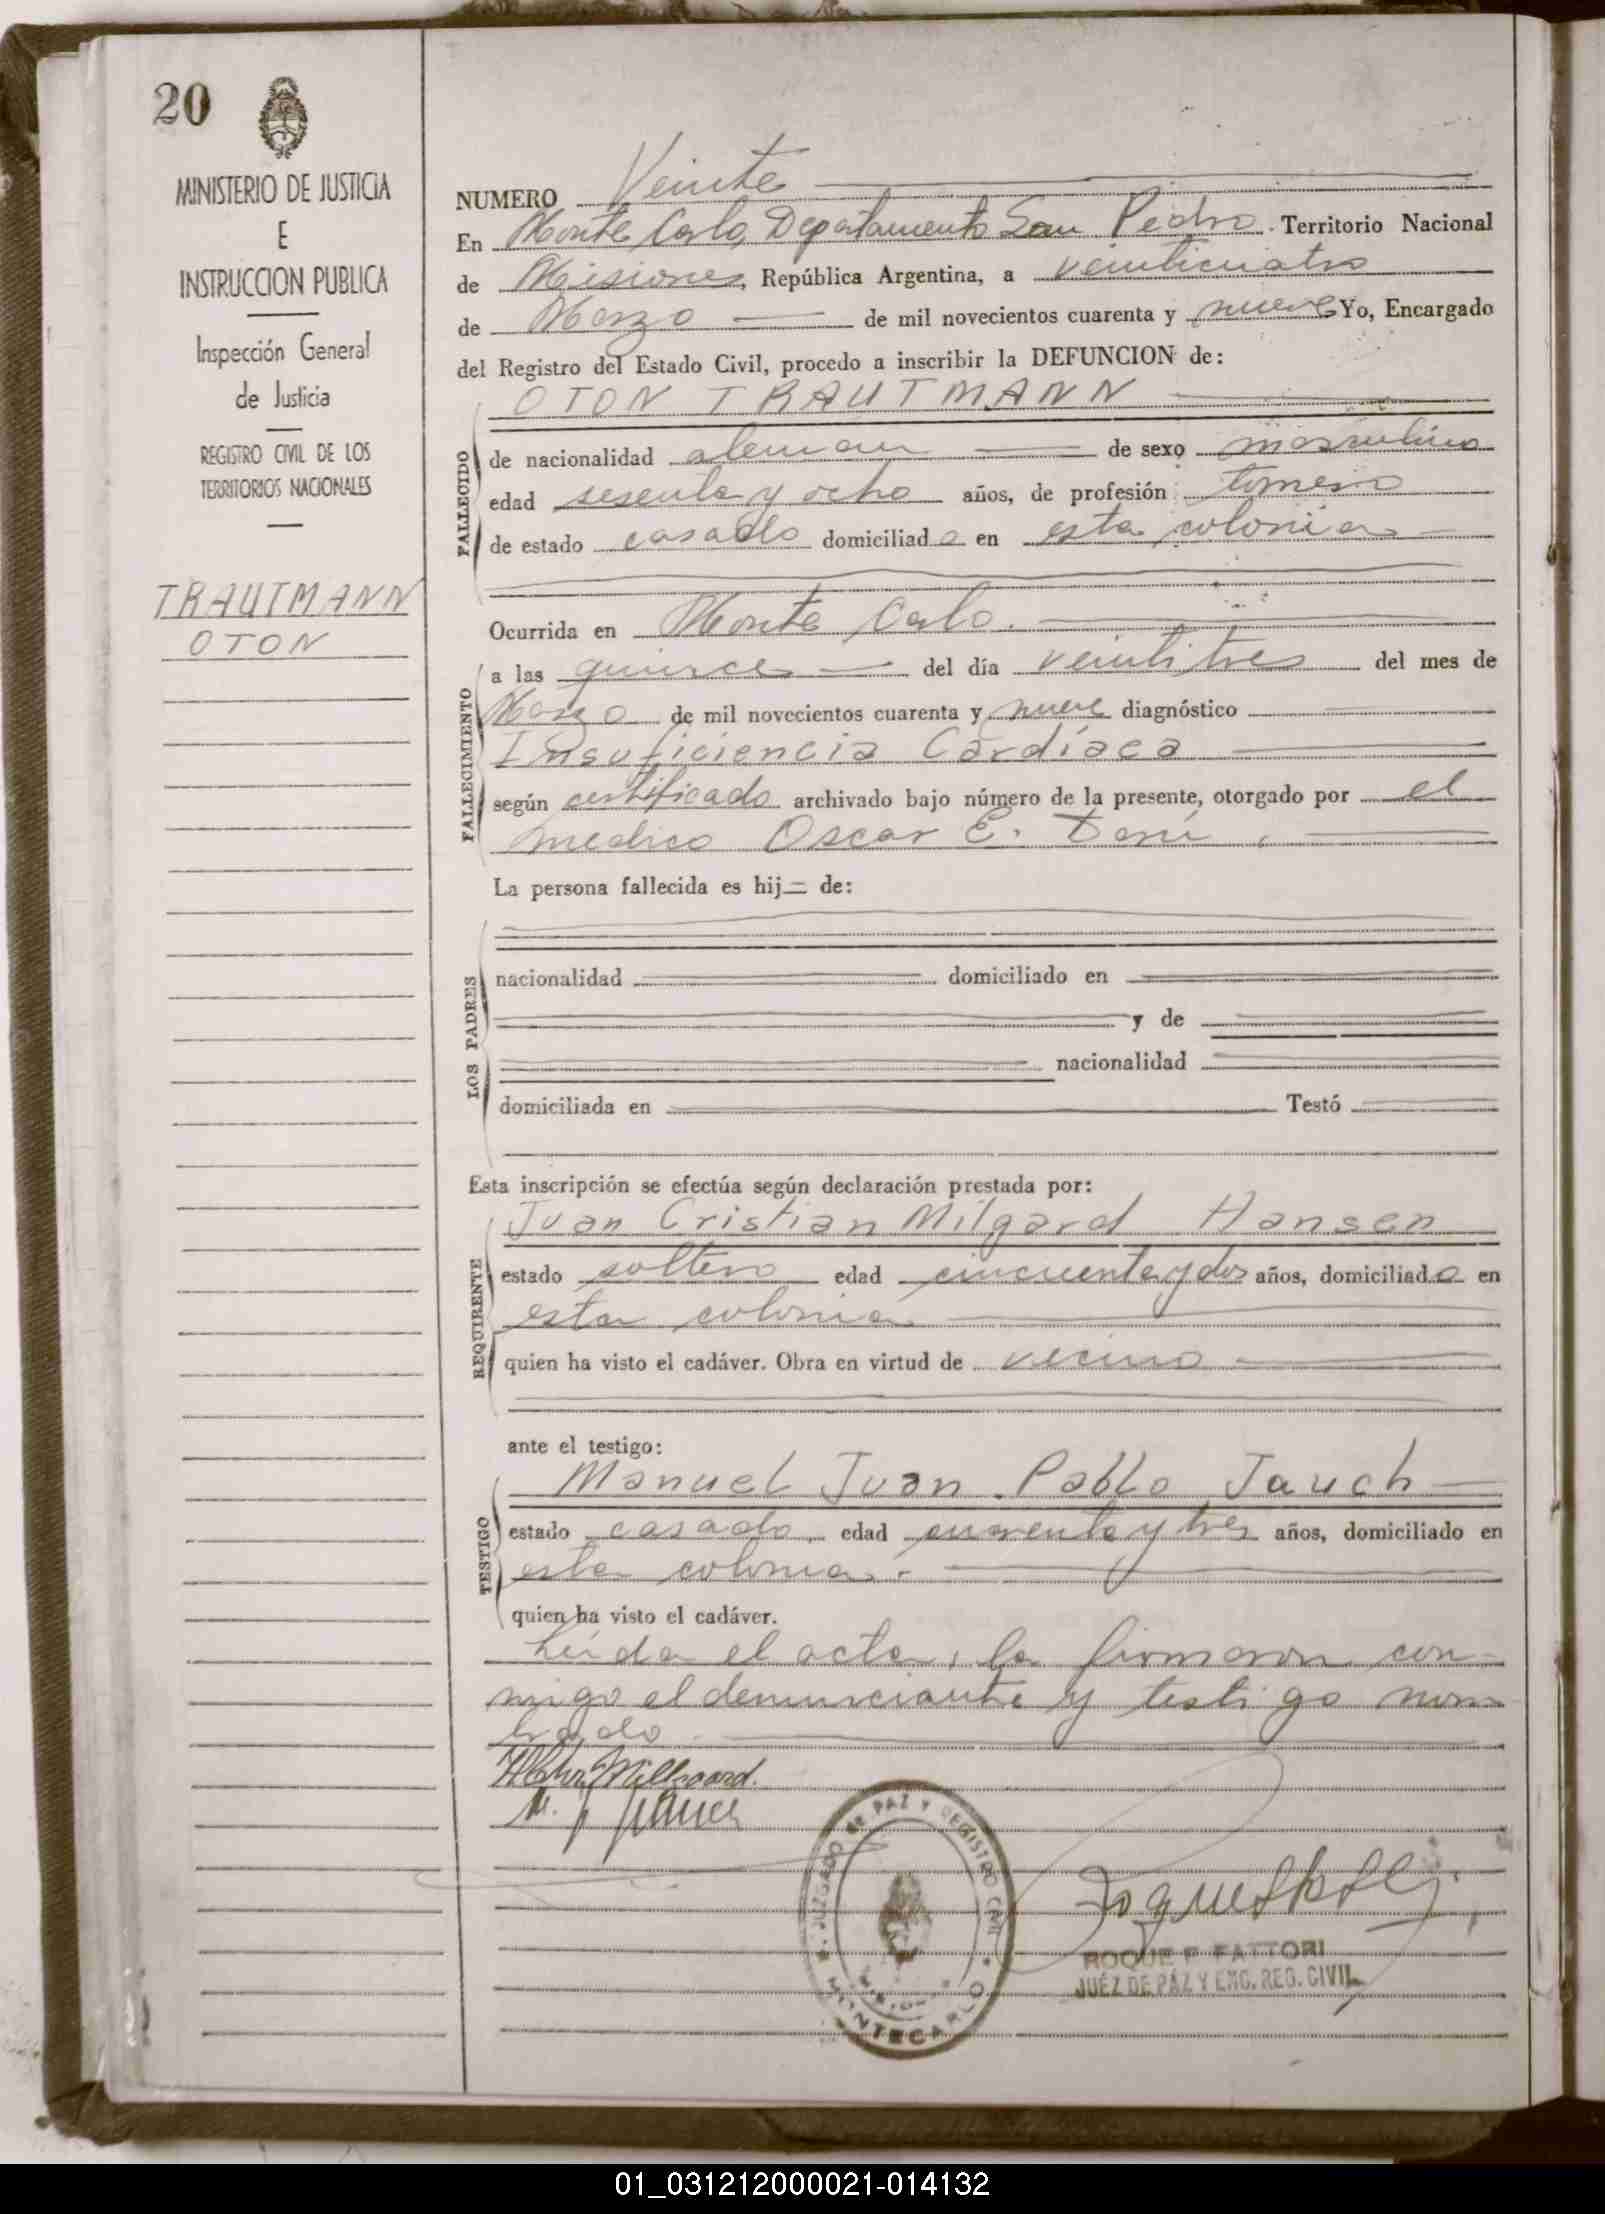 20
MINISTERIO DE JUSTICIA
E
INSTRUCCION PUBLICA
Inspección General
de Justicia
REGISTRO CIVIL DE LOS
TERRITORIOS NACIONALES
TRAUTMANN
OTON
NUMERO Veinte
En Monte Carlo, Departamento San Pedro. Territorio Nacional
de Misiones, República Argentina, a veinticuatro
de Marzo de mil novecientos cuarenta y nueve Yo, Encargado
del Registro del Estado Civil, procedo a inscribir la DEFUNCION de:
OTON TRAUTMANN
FALLECIDO
de nacionalidad aleman de sexo masculino
edad sesenta y ocho años, de profesión tornero
de estado casado domiciliado en esta colonia
Ocurrida en Monte Carlo.
FALLECIMIENTO
a las quince del día veintitres del mes de
Marzo de mil novecientos cuarenta y nueve diagnóstico
Insuficiencia Cardíaca
según certificado archivado bajo número de la presente, otorgado por el
medico Oscar E.
La persona fallecida es hij de:
LOS PADRES
nacionalidad domiciliado en
y de
nacionalidad
domiciliada en Testó
Esta inscripción se efectúa según declaración prestada por:
REQUIRENTE
Juan Cristian Milgard Hansen
estado soltero edad cincuenta y dos años, domiciliado en
esta colonia
quien ha visto el cadáver. Obra en virtud de vecino
ante el testigo:
TESTIGO
Manuel Juan Pablo Jauch
estado casado, edad cuarenta y tres años, domiciliado en
esta colonia.
quien ha visto el cadáver.
Leida el acta, la firmaron con-
migo el denunciante y testigo nom
brado
JUZGADO DE PAZ Y REGISTRO CIVIL
MONTECARLO
ROQUE F. FATTORI
JUÉZ DE PAZ Y ENC. REG. CIVIL
01_031212000021-014132